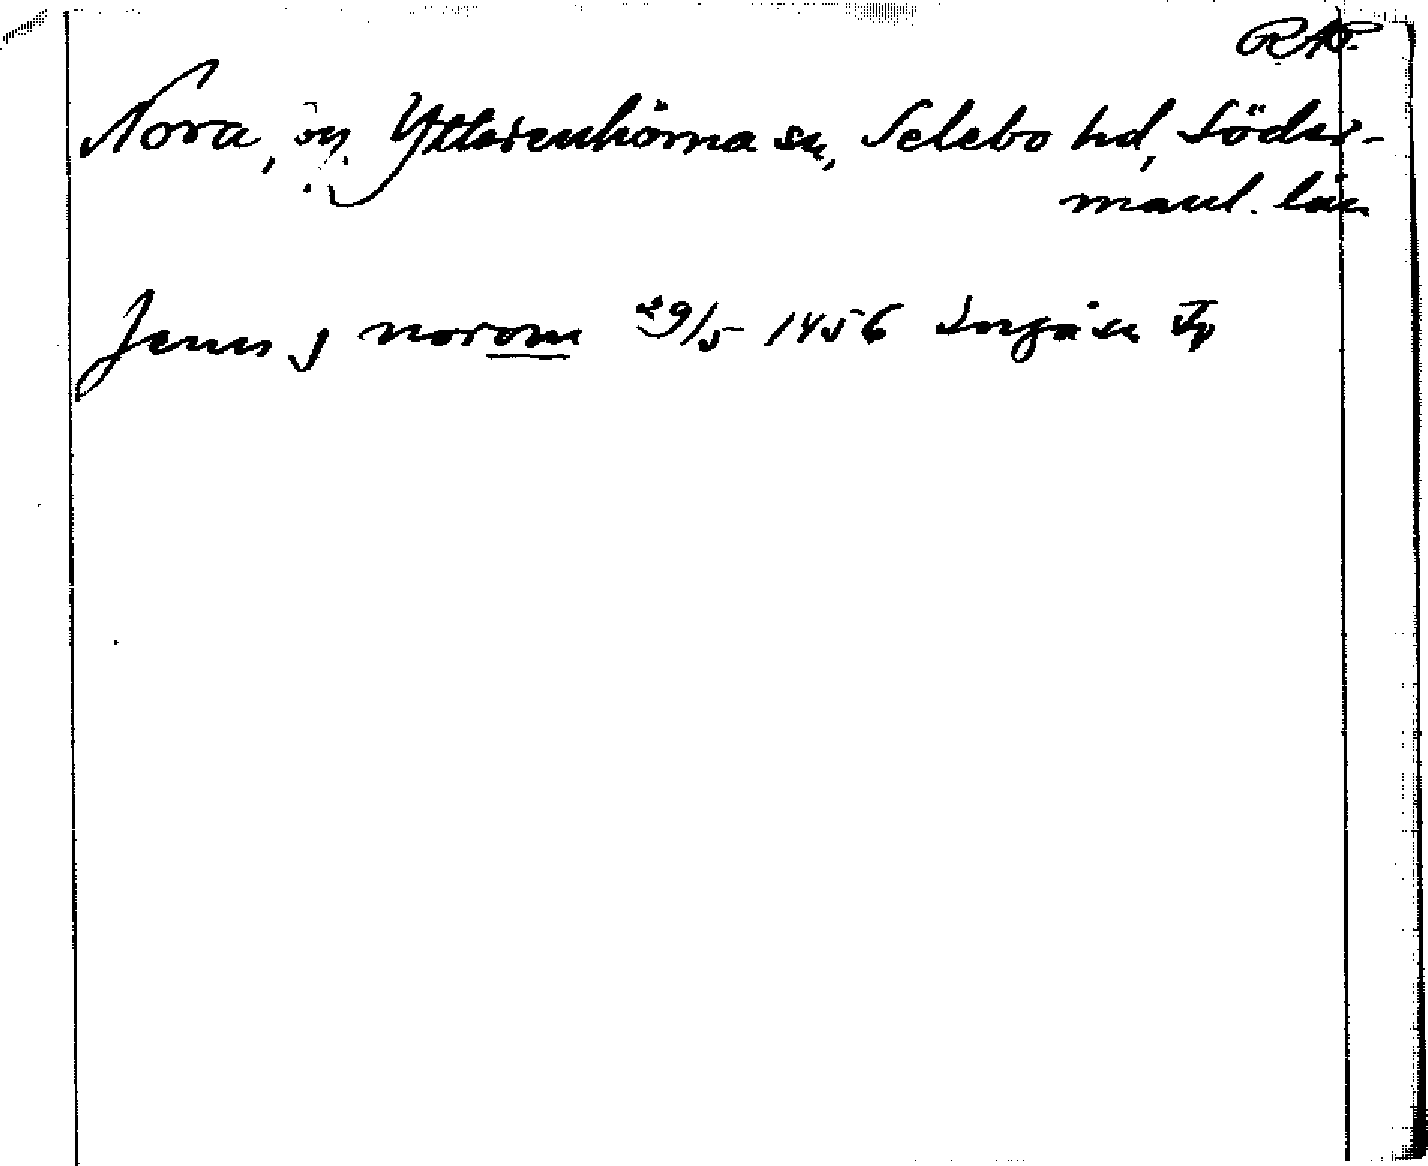 RAP.
Nora, by, Ytterenhörna sn, Selebo hd, Söder-
manl. län
Jenes j norom 29/5 1456 Turgåsn Tp